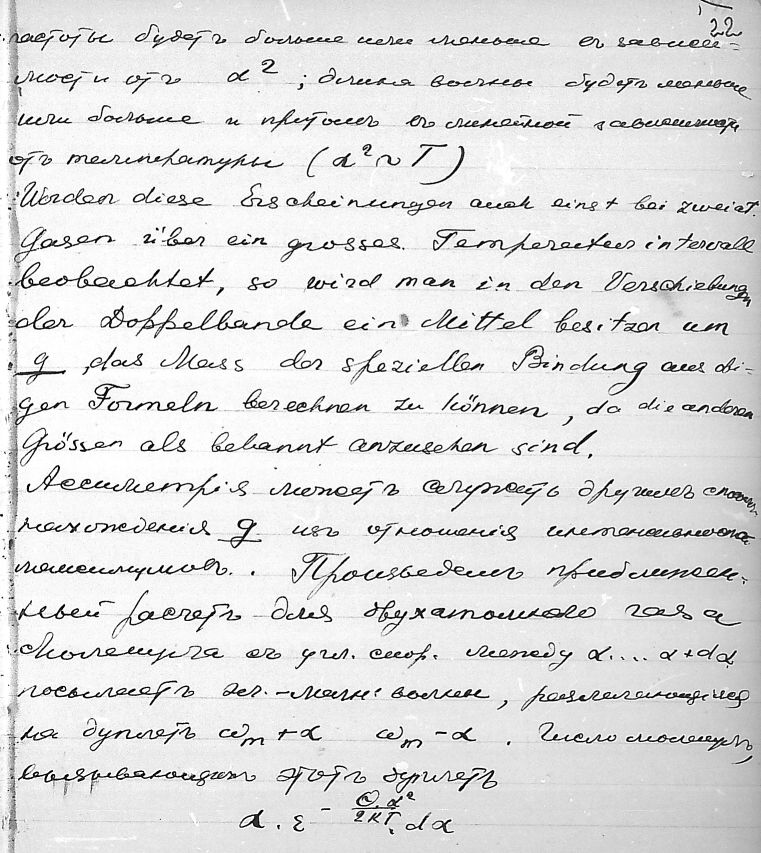 22
частоты будетъ больше или меньше въ зависи-
мости отъ α² ; длина волны будетъ меньше
или больше и притомъ въ линейной зависимости
отъ температуры (α² ~ T)
Werden diese Erscheinungen auch einst bei zweiat.
Gasen über ein grosses Temperaturintervall
beobachtet, so wird man in den Verschiebungen
der Doppelbande ein Mittel besitzen um
g, das Mass der speziellen Bindung aus obi-
gen Formeln berechnen zu können, da die anderen
Grössen als bekannt anzusehen sind.
Ассиметрія можетъ служить другимъ
нахожденія g изъ отношенія интенсивности
максимумовъ. Произведемъ приближен-
ный расчетъ для двухатомнаго газа
Молекула съ угл. скор. между α.... α+dα
посылаетъ эл.-магн. волны, разлагающіяся
на дуплетъ ω_m + α ω_m - α . Число молекулъ,
вызывающихъ этотъ дуплетъ
α . ε^{- Θ.α²/2kT} . dα